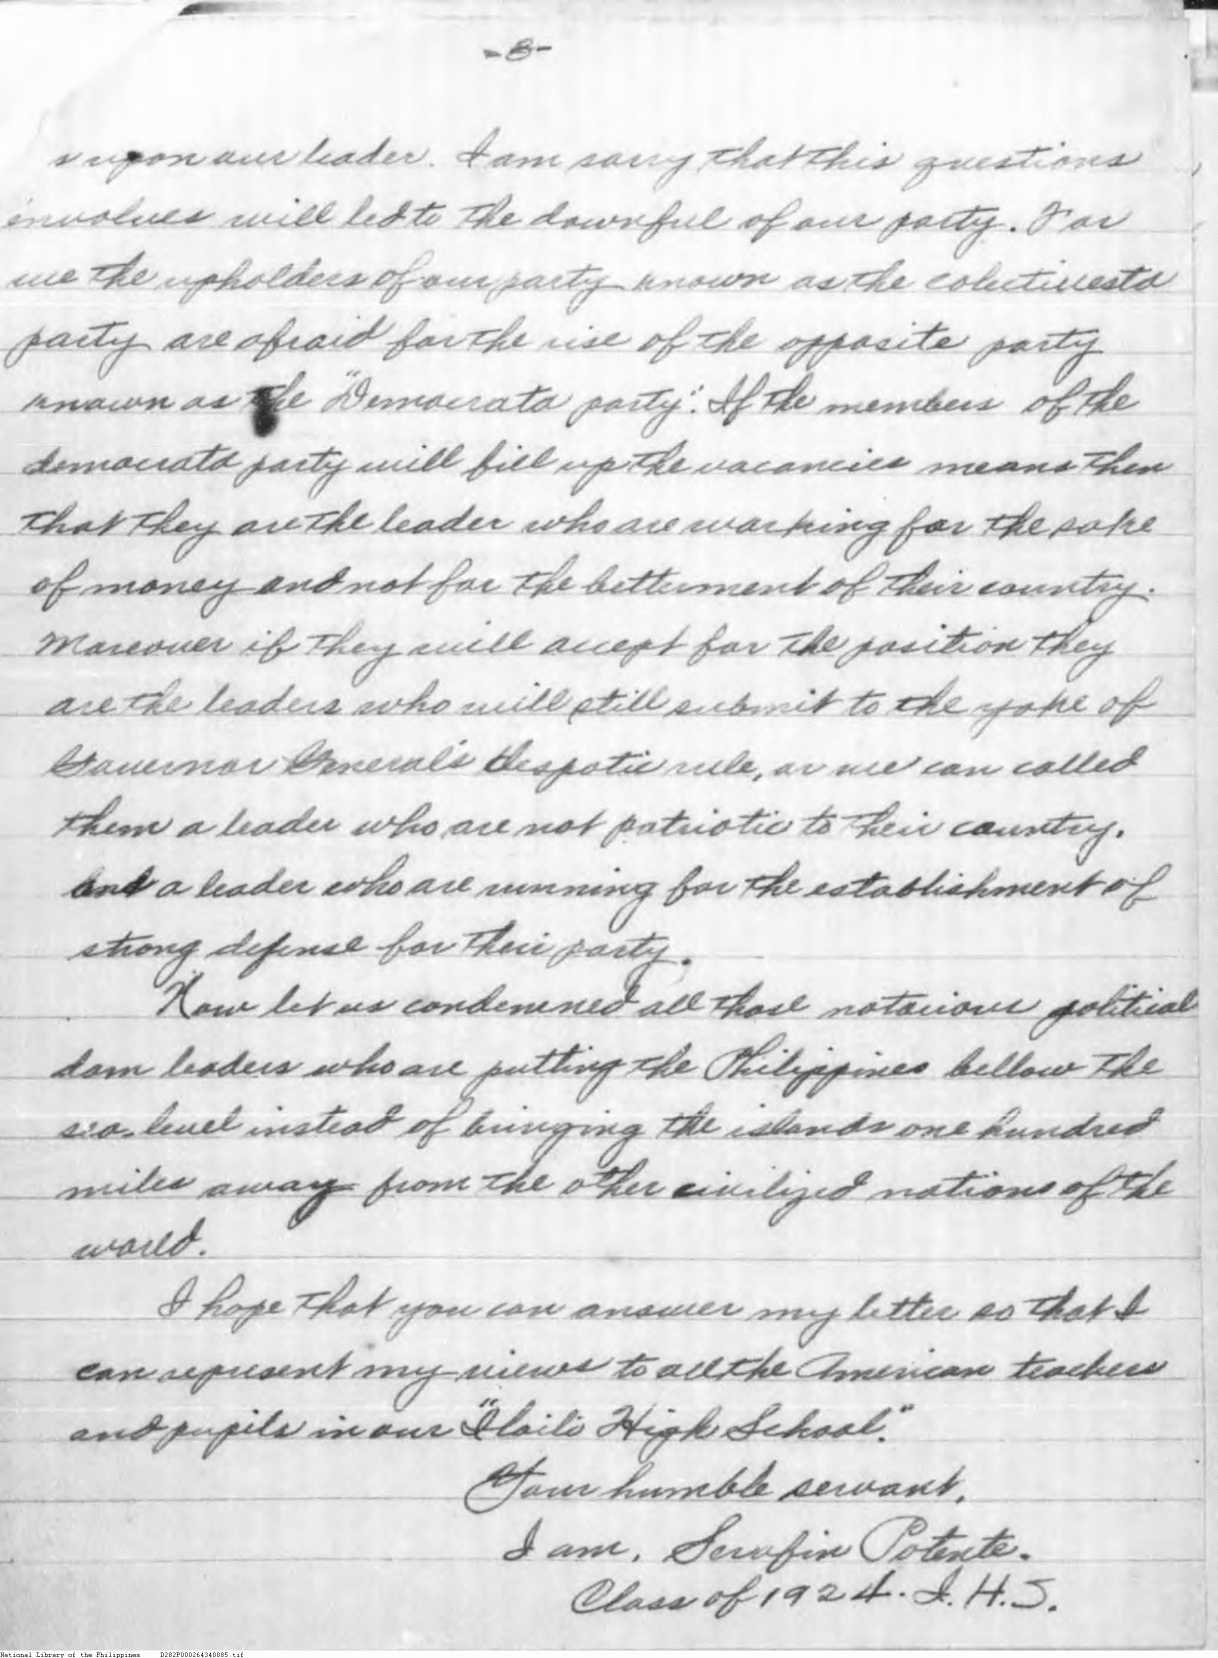 -8-
s upon our leader. I am sorry that this questions
involves will led to the downful of our party. For
me the upholders of our party known as the colectivesta
party are afraid for the rise of the opposite party
known as the "Democrata party". If the members of the
democrata party will fill up the vacancies means then
that they are the leader who are warking for the sake
of money and not for the betterment of their country.
Moreover if they will accept for the position they
are the leaders who will still submit to the yoke of
Governor General's despotic rule, or we can called
them a leader who are not patriotic to their country.
And a leader who are running for the establishment of
strong defense for their party.
Now let us condemned all those notorious political
dam leaders who are putting the Philippines bellow the
sea-level instead of bringing the islands one hundred
miles away from the other civilized nations of the
world.
I hope that you can answer my letter so that I
can represent my views to all the American teachers
and pupils in our "Iloilo High School."
Your humble servant,
I am, Serafin Potente.
Class of 1924. I.H.S.
National Library of the Philippines D282P000264340085.tif